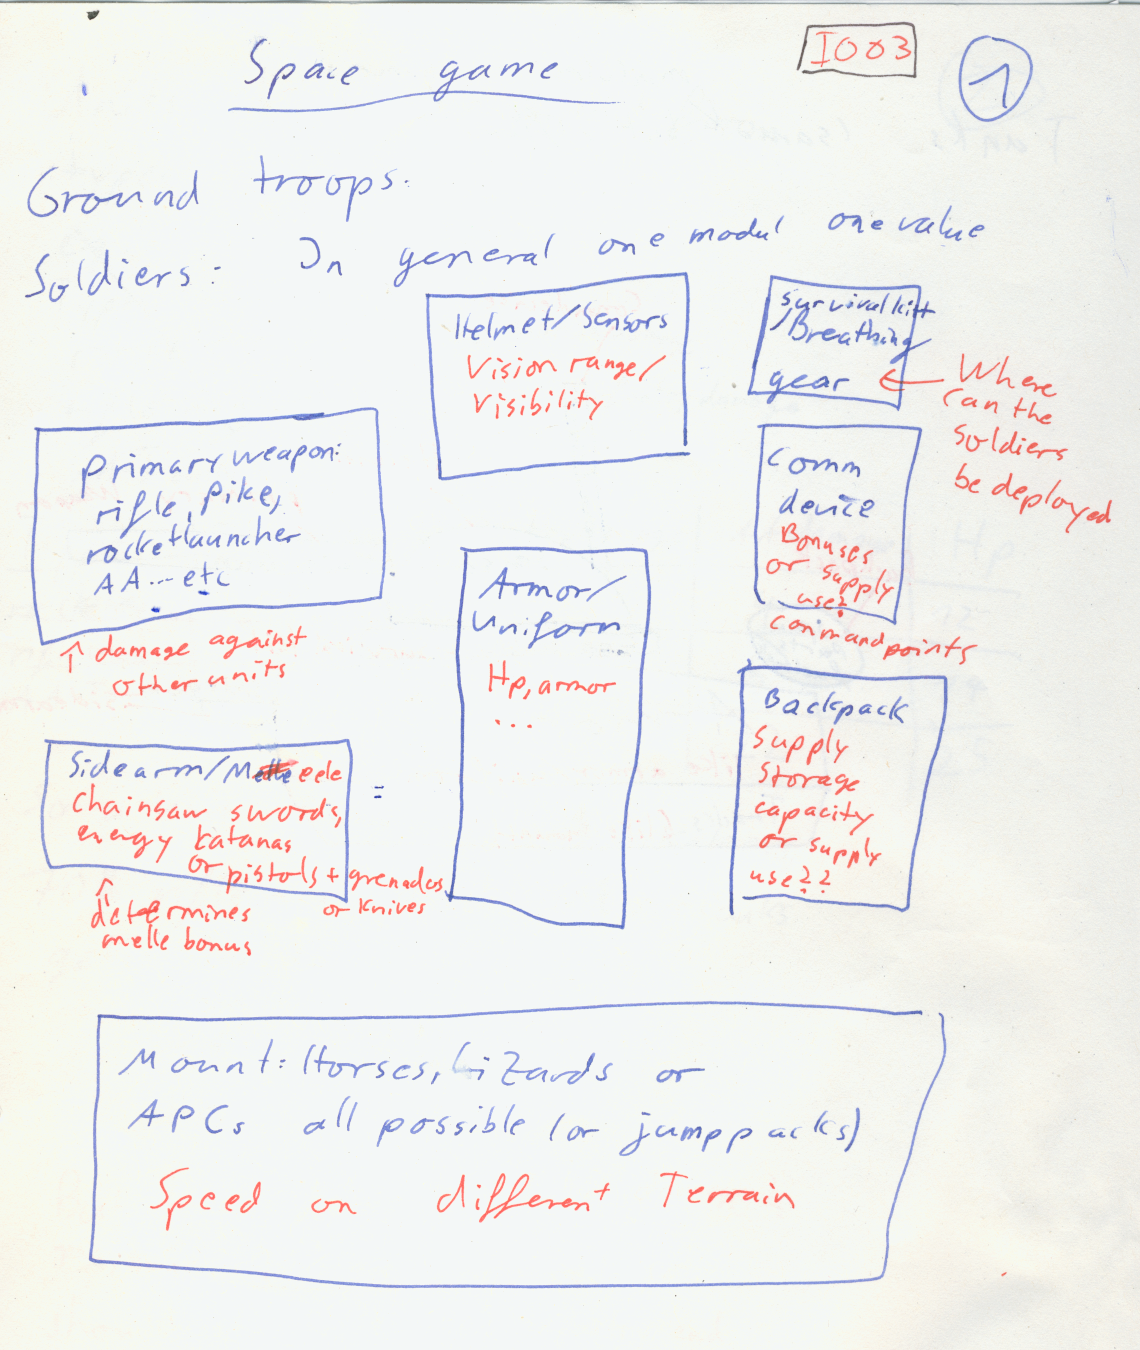 Space game
I003
1
Ground troops.
Soldiers: In general one modul one value
Helmet/Sensors
Vision range/
Visibility
survivalkitt
/Breathing
gear
Where
can the
soldiers
be deployed
Primary weapon:
rifle, pike,
rocketlauncher
AA... etc
damage against
other units
Comm
device
Bonuses
or supply
use?
command points
Armor/
Uniform
Hp, armor
...
Sidearm/Melee
chainsaw swords,
energy katanas
or pistols + grenades
or knives
determines
melle bonus
Backpack
supply
storage
capacity
or supply
use??
Mount: Horses, Lizards or
APCs all possible (or jumppacks)
Speed on different Terrain